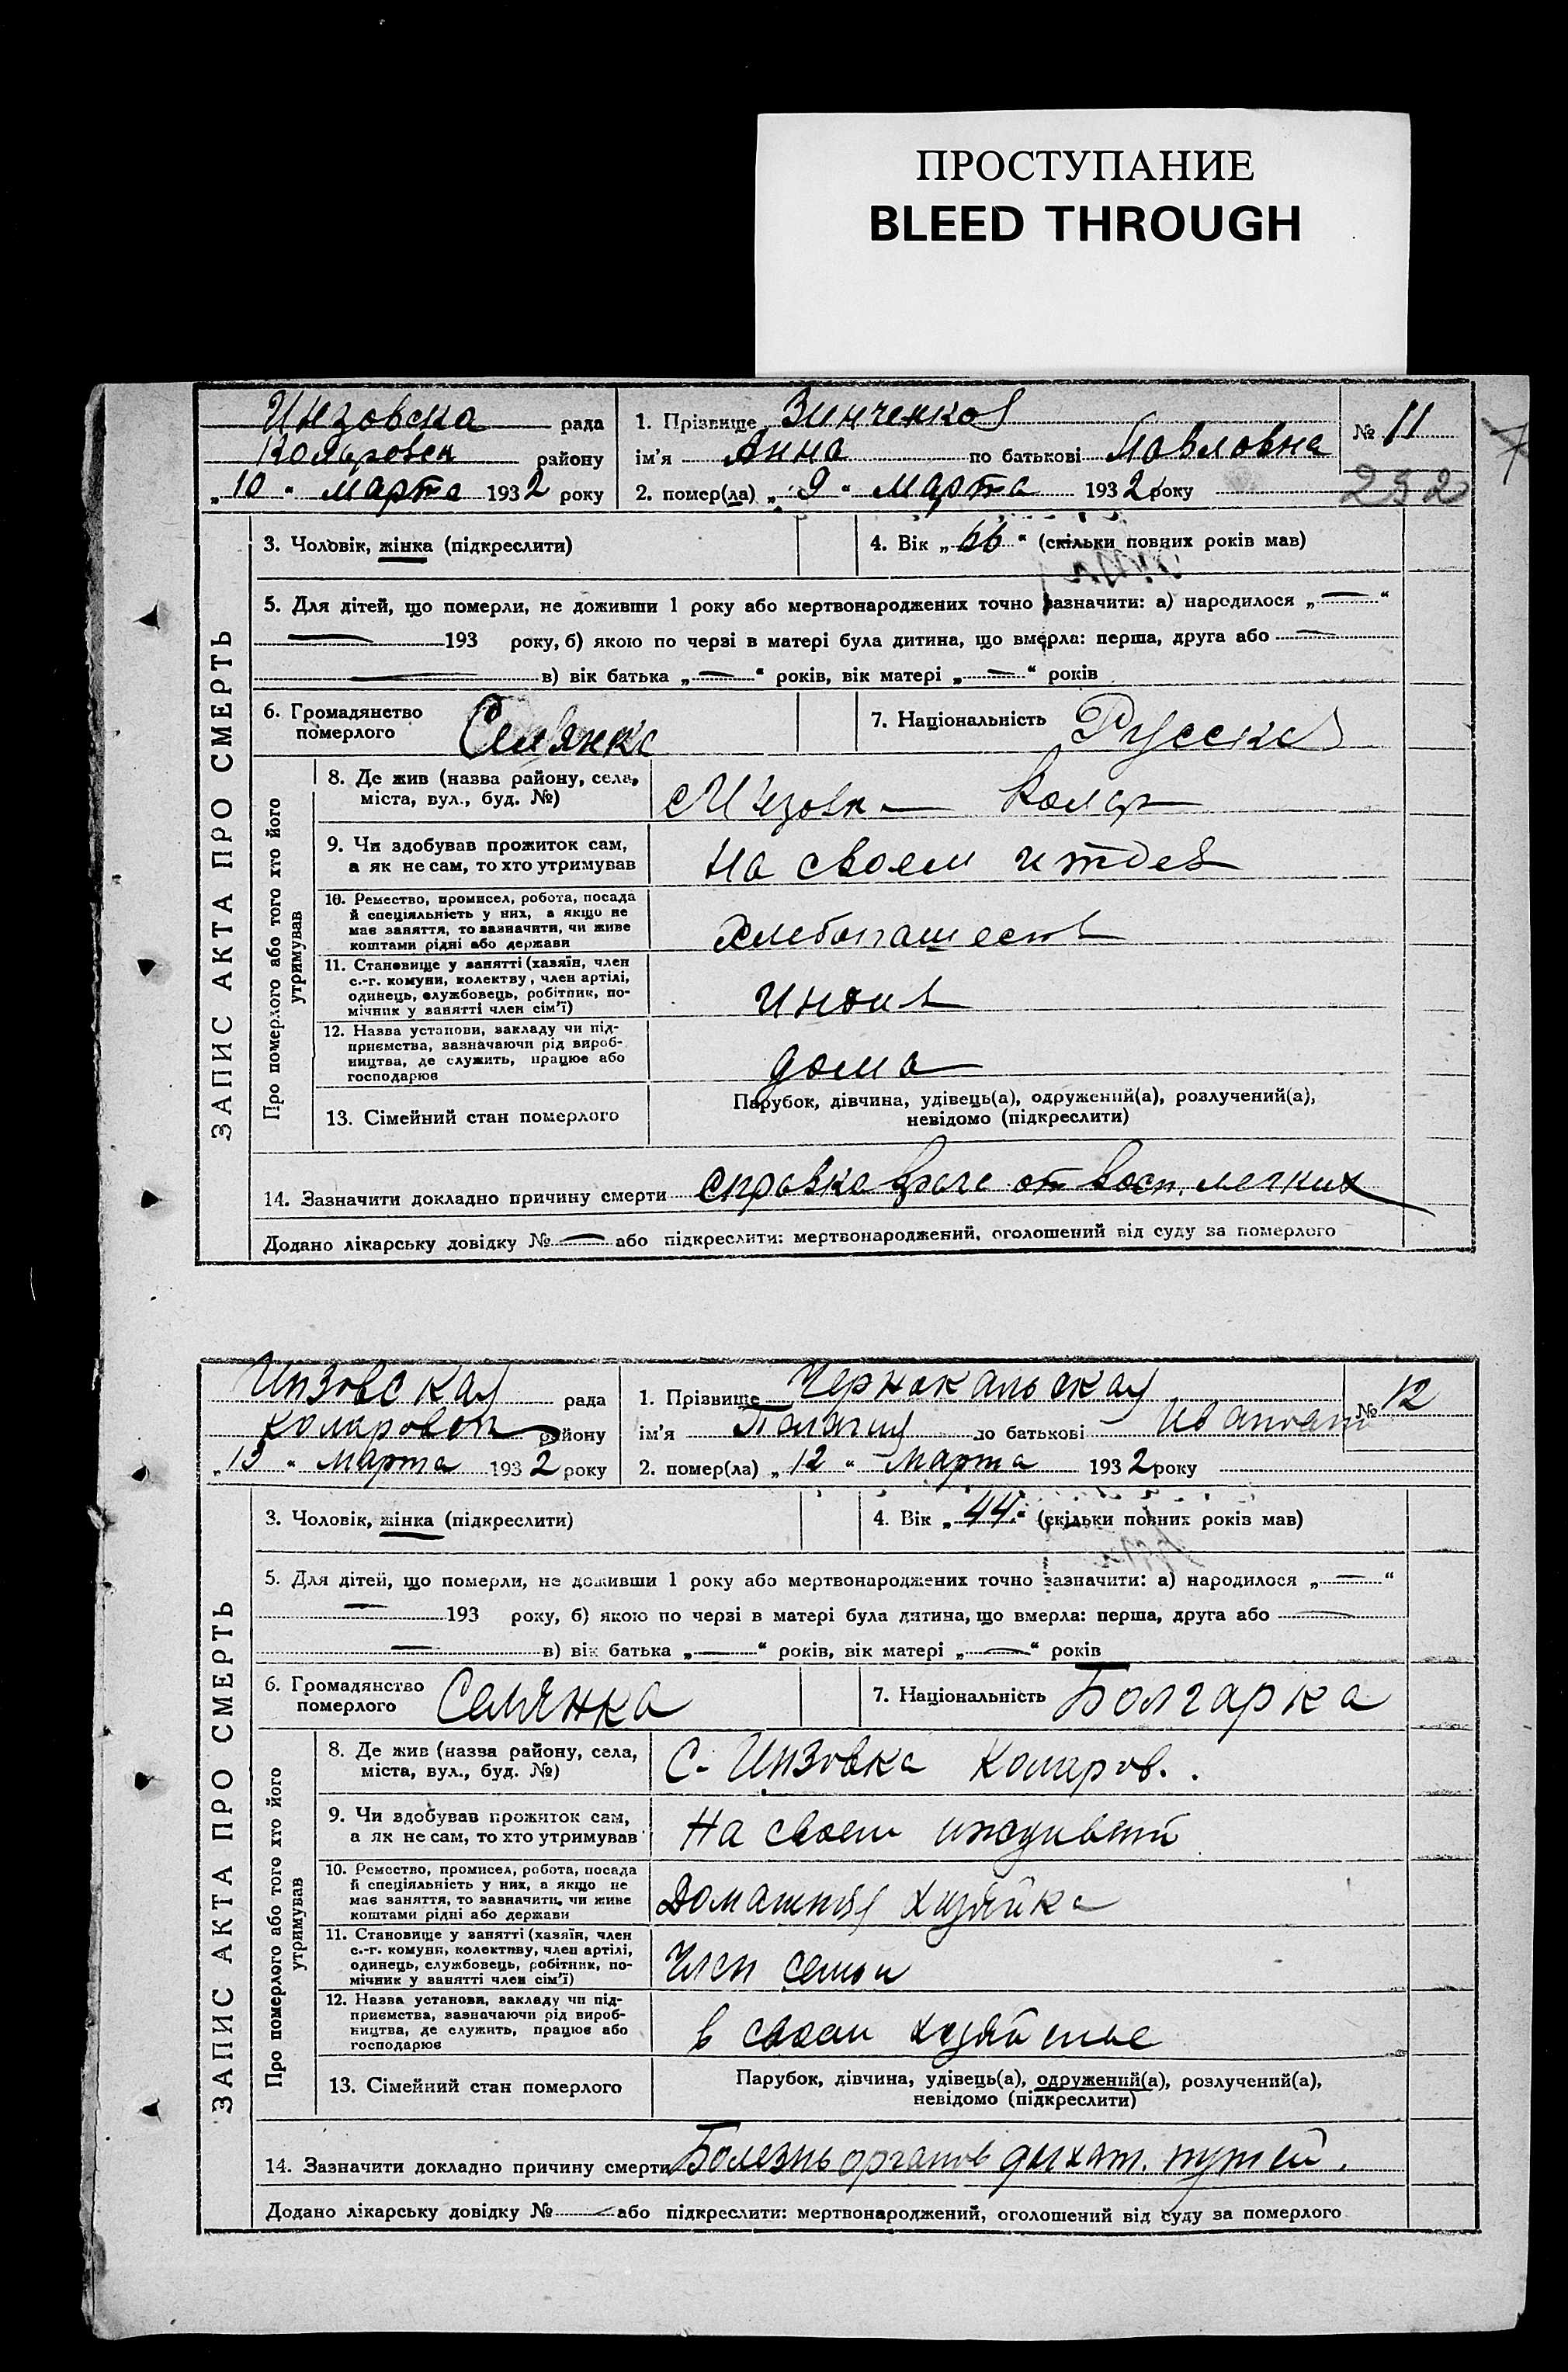 ПРОСТУПАНИЕ
BLEED THROUGH
Инзовска рада
Коляровск району
„10“ марта 1932 року
1. Прізвище Зинченко
ім'я Анна по батькові Павловна
2. помер(ла) „9“ марта 1932 року
№ 11
232
ЗАПИС АКТА ПРО СМЕРТЬ
3. Чоловік, жінка (підкреслити)
4. Вік „66“ (скільки повних років мав)
5. Для дітей, що померли, не доживши 1 року або мертвонароджених точно зазначити: а) народилося „—“
— 193 року, б) якою по черзі в матері була дитина, що вмерла: перша, друга або —
— в) вік батька „—“ років, вік матері „—“ років
6. Громадянство
померлого
Селянка
7. Національність Русска
Про померлого або того хто його
утримував
8. Де жив (назва району, села,
міста, вул., буд. №)
9. Чи здобував прожиток сам,
а як не сам, то хто утримував
На своем
10. Ремество, промисел, робота, посада
й спеціяльність у них, а якщо не
має заняття, то зазначити, чи живе
коштами рідні або держави
11. Становище у занятті (хазяїн, член
с.-г. комуни, колективу, член артілі,
одинець, службовець, робітник, по-
мічник у занятті член сім'ї)
12. Назва установи, закладу чи під-
приємства, зазначаючи рід вироб-
ництва, де служить, працює або
господарює
дома
13. Сімейний стан померлого
Парубок, дівчина, удівець(а), одружений(а), розлучений(а),
невідомо (підкреслити)
14. Зазначити докладно причину смерти справка от восп. легких
Додано лікарську довідку № — або підкреслити: мертвонароджений, оголошений від суду за померлого
Инзовская рада
Коларовск району
„13“ Марта 1932 року
1. Прізвище Чернокальская
ім'я по батькові
2. помер(ла) „12“ Марта 1932 року
№ 12
ЗАПИС АКТА ПРО СМЕРТЬ
3. Чоловік, жінка (підкреслити)
4. Вік „44“ (скільки повних років мав)
5. Для дітей, що померли, не доживши 1 року або мертвонароджених точно зазначити: а) народилося „—“
— 193 року, б) якою по черзі в матері була дитина, що вмерла: перша, друга або —
— в) вік батька „—“ років, вік матері „—“ років
6. Громадянство
померлого
Селянка
7. Національність Болгарка
Про померлого або того хто його
утримував
8. Де жив (назва району, села,
міста, вул., буд. №)
С. Инзовка Коляров.
9. Чи здобував прожиток сам,
а як не сам, то хто утримував
На своем
10. Ремество, промисел, робота, посада
й спеціяльність у них, а якщо не
має заняття, то зазначити, чи живе
коштами рідні або держави
Домашняя хозяйка
11. Становище у занятті (хазяїн, член
с.-г. комуни, колективу, член артілі,
одинець, службовець, робітник, по-
мічник у занятті член сім'ї)
Член семьи
12. Назва установи, закладу чи під-
приємства, зазначаючи рід вироб-
ництва, де служить, працює або
господарює
в своем хозяйстве
13. Сімейний стан померлого
Парубок, дівчина, удівець(а), одружений(а), розлучений(а),
невідомо (підкреслити)
14. Зазначити докладно причину смерти Болезнь органов дыхат. путей.
Додано лікарську довідку № — або підкреслити: мертвонароджений, оголошений від суду за померлого